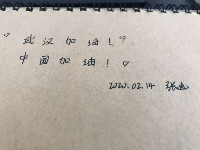 武汉加油！
中国加油！
2020.02.14 张